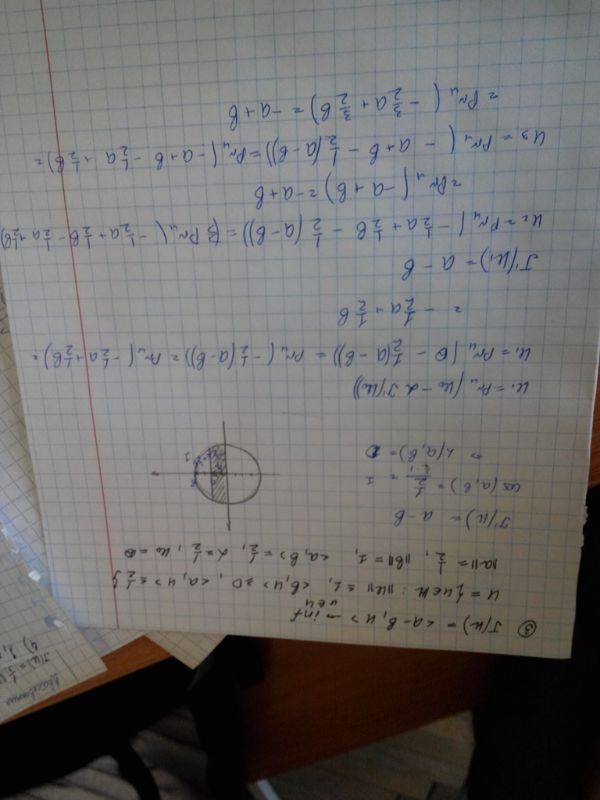 ③ J(u) = <a-b, u> → inf
u∈U
U = {u∈H : ||u|| ≤ 1, <b,u> ≥ 0, <a,u> ≤ 1/2}
||a|| = 1/2, ||b|| = 1, <a,b> = 1/2, α = 1/2, u₀ = 0
J'(u) = a-b
1
⇒ ∠(a,b) = 0
u₁ = Pr_u (u₀ - α J'(u₀))
u₁ = Pr_u (0 - 1/2(a-b)) = Pr_u (-1/2(a-b)) = Pr_u (-1/2a + 1/2b) =
= -1/2a + 1/2b
J'(u₁) = a-b
u₂ = Pr_u (-1/2a + 1/2b - 1/2(a-b)) = Pr_u (-1/2a + 1/2b - 1/2a + 1/2b)
= Pr_u (-a+b) = -a+b
u₃ = Pr_u (-a+b - 1/2(a-b)) = Pr_u (-a+b - 1/2a + 1/2b) =
= Pr_u (-3/2a + 3/2b) = -a+b